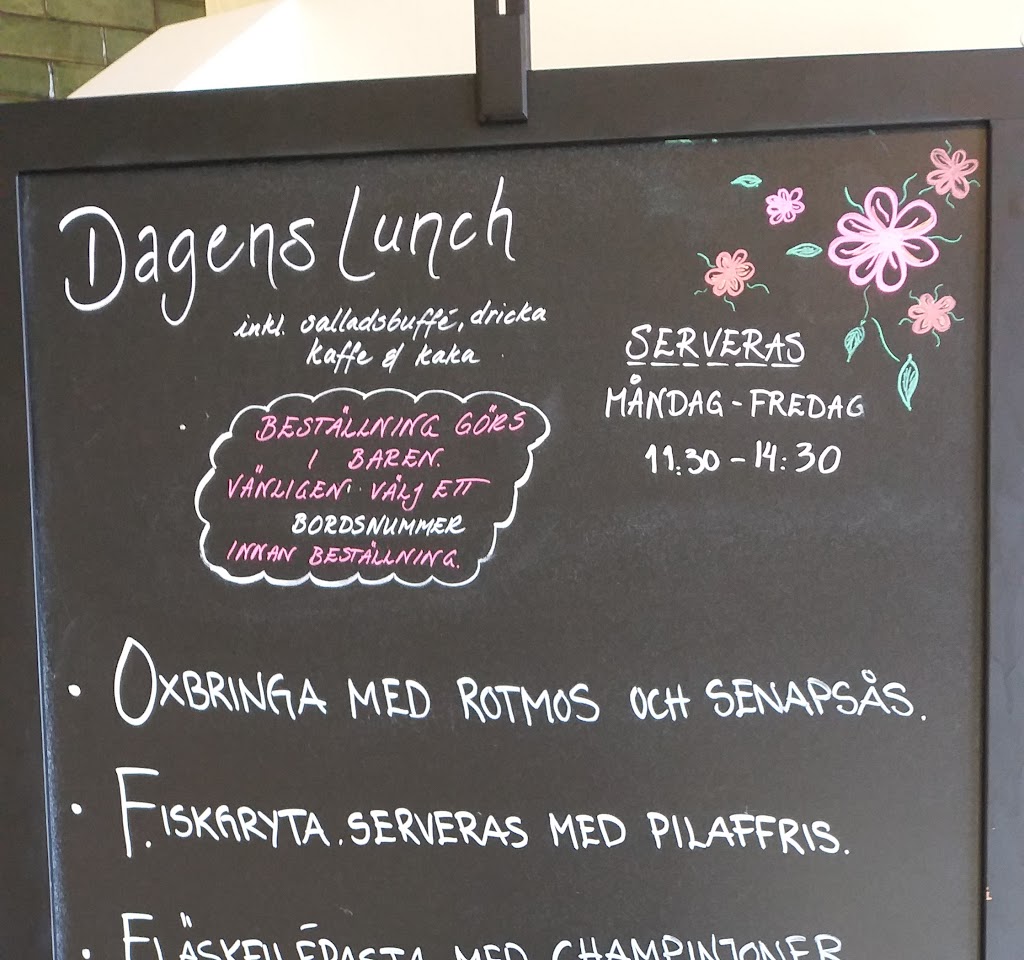 Dagens Lunch
inkl. salladsbuffé, dricka
kaffe & kaka
BESTÄLLNING GÖRS
I BAREN.
VÄNLIGEN VÄLJ ETT
BORDSNUMMER
INNAN BESTÄLLNING.
SERVERAS
MÅNDAG - FREDAG
11:30 - 14:30
• OXBRINGA MED ROTMOS OCH SENAPSÅS.
• FISKGRYTA. SERVERAS MED PILAFFRIS.
• FLÄSKFILÉPASTA MED CHAMPINJONER